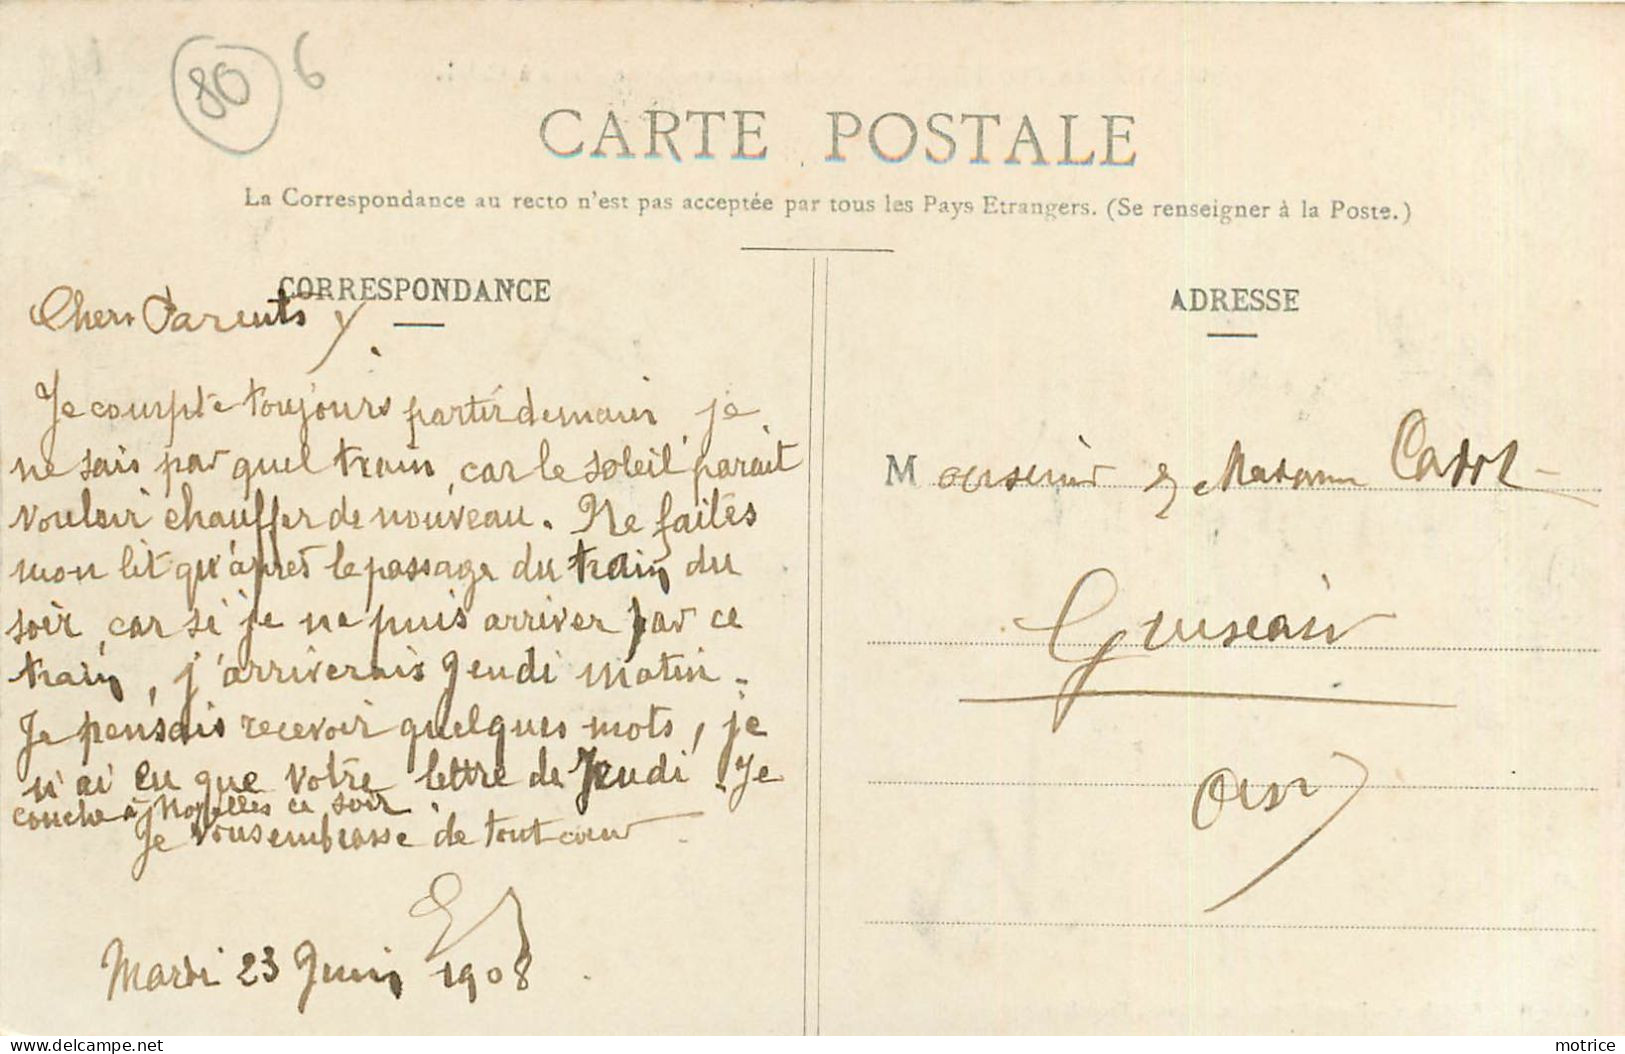 80 6
CARTE POSTALE
La Correspondance au recto n'est pas acceptée par tous les Pays Etrangers. (Se renseigner à la Poste.)
CORRESPONDANCE
Chers Parents
Je compte toujours partir demain, je
ne sais par quel train, car le soleil parait
vouloir chauffer de nouveau. Ne faites
mon lit qu'après le passage du train du
soir, car si je ne puis arriver par ce
train, j'arriverais Jeudi matin.
Je pensais recevoir quelques mots, je
n'ai eu que votre lettre de Jeudi. Je
couche à Noyelles ce soir
Je vous embrasse de tout cœur
Mardi 23 Juin 1908
ADRESSE
Monsieur & Madame
Oisy
delcampe.net
motrice